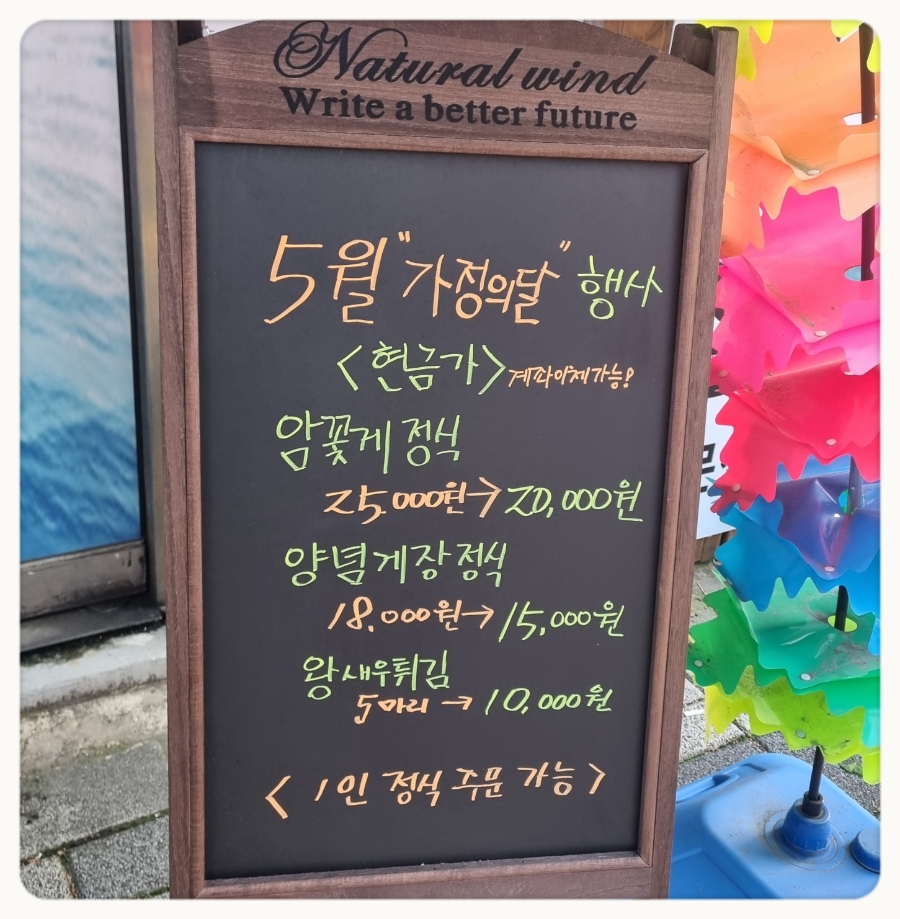 Natural wind
Write a better future
5월 "가정의달" 행사
<현금가> 계좌이체가능!
암꽃게 정식
25,000원→20,000원
양념게장 정식
18,000원→15,000원
왕새우튀김
5마리→10,000원
<1인 정식 주문 가능>